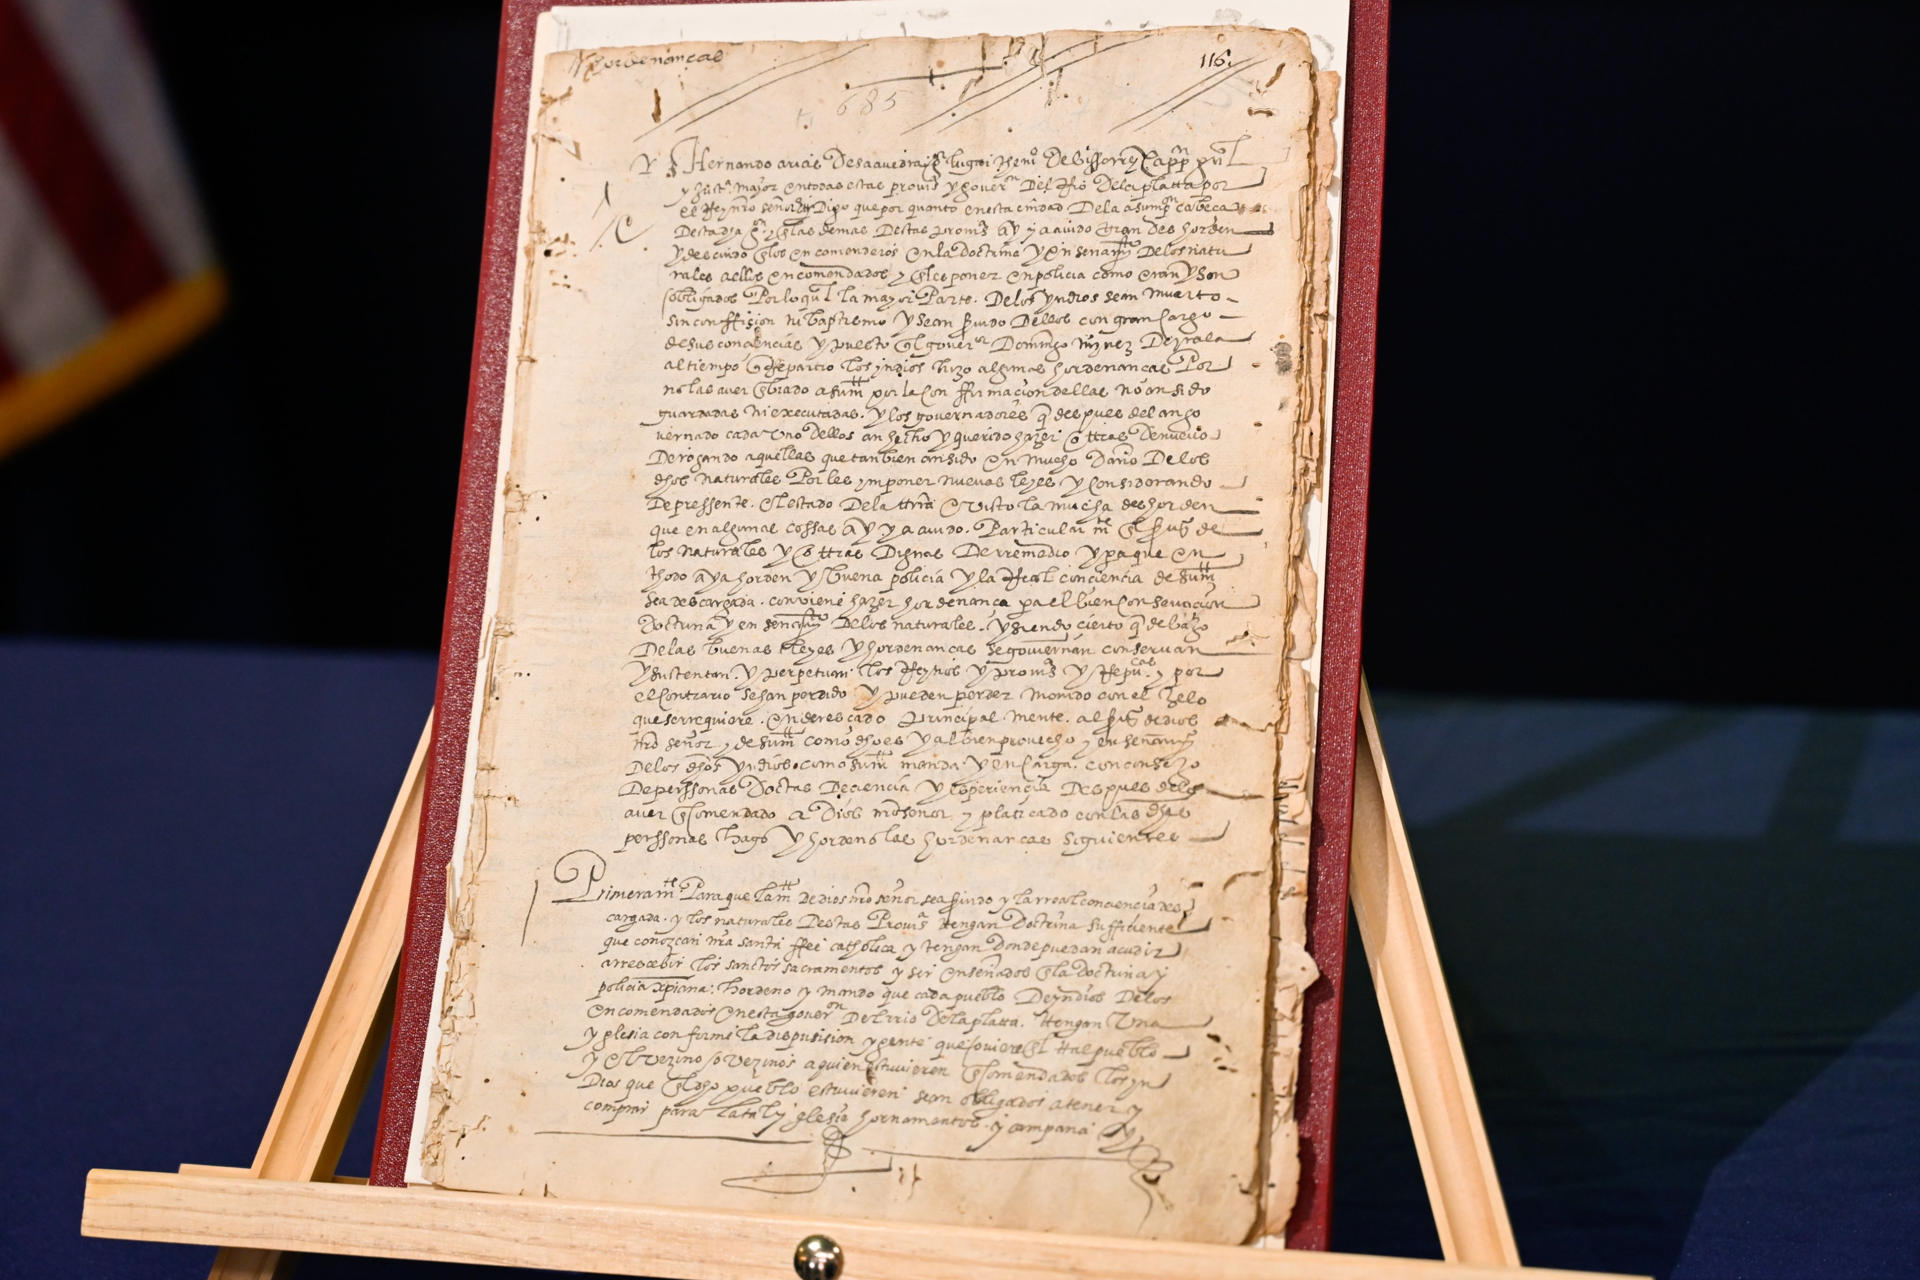 hordenanças
116.
685
Hernando arias Desaavedra lugar theni<sup>e</sup> De Visorrey cappn gnl
y Just<sup>a</sup> mayor en todas estas provi<sup>as</sup> y gover<sup>on</sup> Del Rio Dela platta por
el Rey nro señor Digo que por quanto en esta ciudad Dela asump<sup>on</sup> cabeca
Desta y las demas Destas provi<sup>as</sup> ay y a avido gran des horden
y descuido en los en comenderos en la doctrina y en senam<sup>to</sup> Delos natu
rales a ellos en comendados y en les poner en policia como eran y son
obligados Por lo ql la mayor Parte. De los yndios sean muerto
sin conffision ni baptismo y sean servido Dellos con gran cargo
de sus conciencias y puesto quel gover<sup>or</sup> Domingo miz Deyrala
al tiempo que Repartio los yndios hizo algunas hordenancas Por
no las aver embiado a su m<sup>d</sup> por la con ffirmacion dellas no an sido
guardadas ni executadas. y los governadores q despues del an go
vernado cada uno Dellos an hecho y querido hazer ottras De nuevo
Derogando aquellas que tanbien an sido en mucho Daño De los
dhos naturales Por les ymponer nuevas leyes y considerando
De pressente. el estado De la ttrra e visto la mucha des horden
que en algunas cossas ay y a avido. Particular m<sup>te</sup> en el servi<sup>o</sup> de
los naturales y ottras Dignas De rremedio y pa que en
thodo aya horden y buena policia y la Real conciencia de su m<sup>d</sup>
sea descargada. conviene hazer hordenanca pa el bien conservacion
Doctrina y en senam<sup>to</sup> De los naturales. y siendo cierto q debaxo
De las buenas leyes y hordenancas se goviernan conservan
y sustentan. y perpetuan los Reynos y provi<sup>as</sup> y Repu<sup>cas</sup> y por
el contrario se han perdido y pueden perder Movido con el zelo
que se rrequiere. enderescado principal mente. al servi<sup>o</sup> de dios
nro señor y de su m<sup>d</sup> como dho es y al bien provecho y en senam<sup>to</sup>
De los dhos yndios. como su m<sup>d</sup> manda y encarga. con consejo
De perssonas Doctas De ciencia y esperiencia Despues delo
aver encomendado a Dios nro señor y platicado con las dhas
perssonas hago y hordeno las hordenancas siguientes
Primeram<sup>te</sup> Para que la m<sup>d</sup> de dios nro señor sea servido y la rreal conciencia des
cargada. y los naturales Destas Provi<sup>as</sup> tengan Doctrina sufficiente
que conozcan nra santa ffee catholica y tengan Donde puedan acudir
a rrescebir los sanctos sacramentos y ser enseñados en la doctrina y
policia xpiana: hordeno y mando que cada pueblo De yndios De los
en comendados en esta gover<sup>on</sup> Del rrio De la platta. ttengan una
yglesia conforme la dispusision y gente que hoviere en el ttal pueblo
y el vezino o vezinos a quien estuvieren encomendados los yn
Dios que en el dho pueblo estuvieren sean obligados a tener y
comprar para la tal yglesia hornamentos y campana